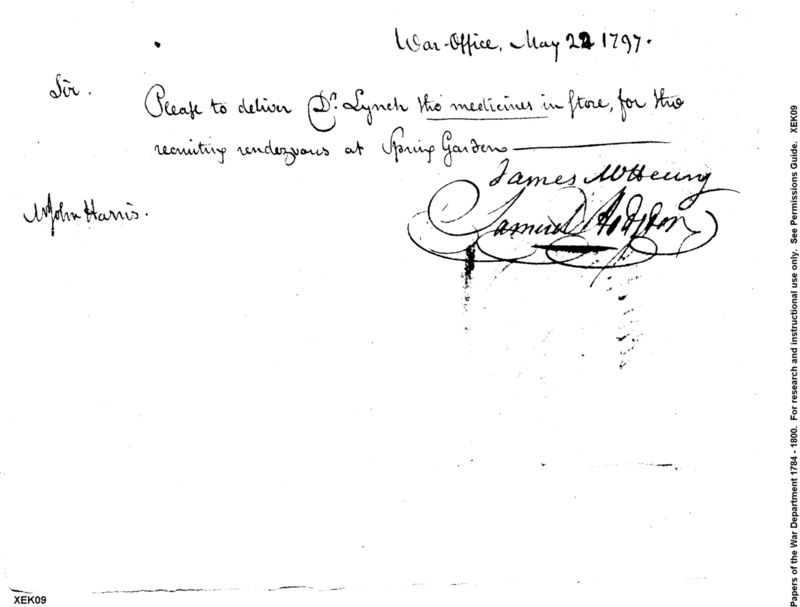 War-Office, May 22 1797.
Sir.
Please to deliver Dr. Lynch the medicines in store, for the
recruiting rendezvous at Spring Garden
James McHenry
Samuel Hodgdon
Mr John Harris.
XEK09
Papers of the War Department 1784 - 1800. For research and instructional use only. See Permissions Guide. XEK09